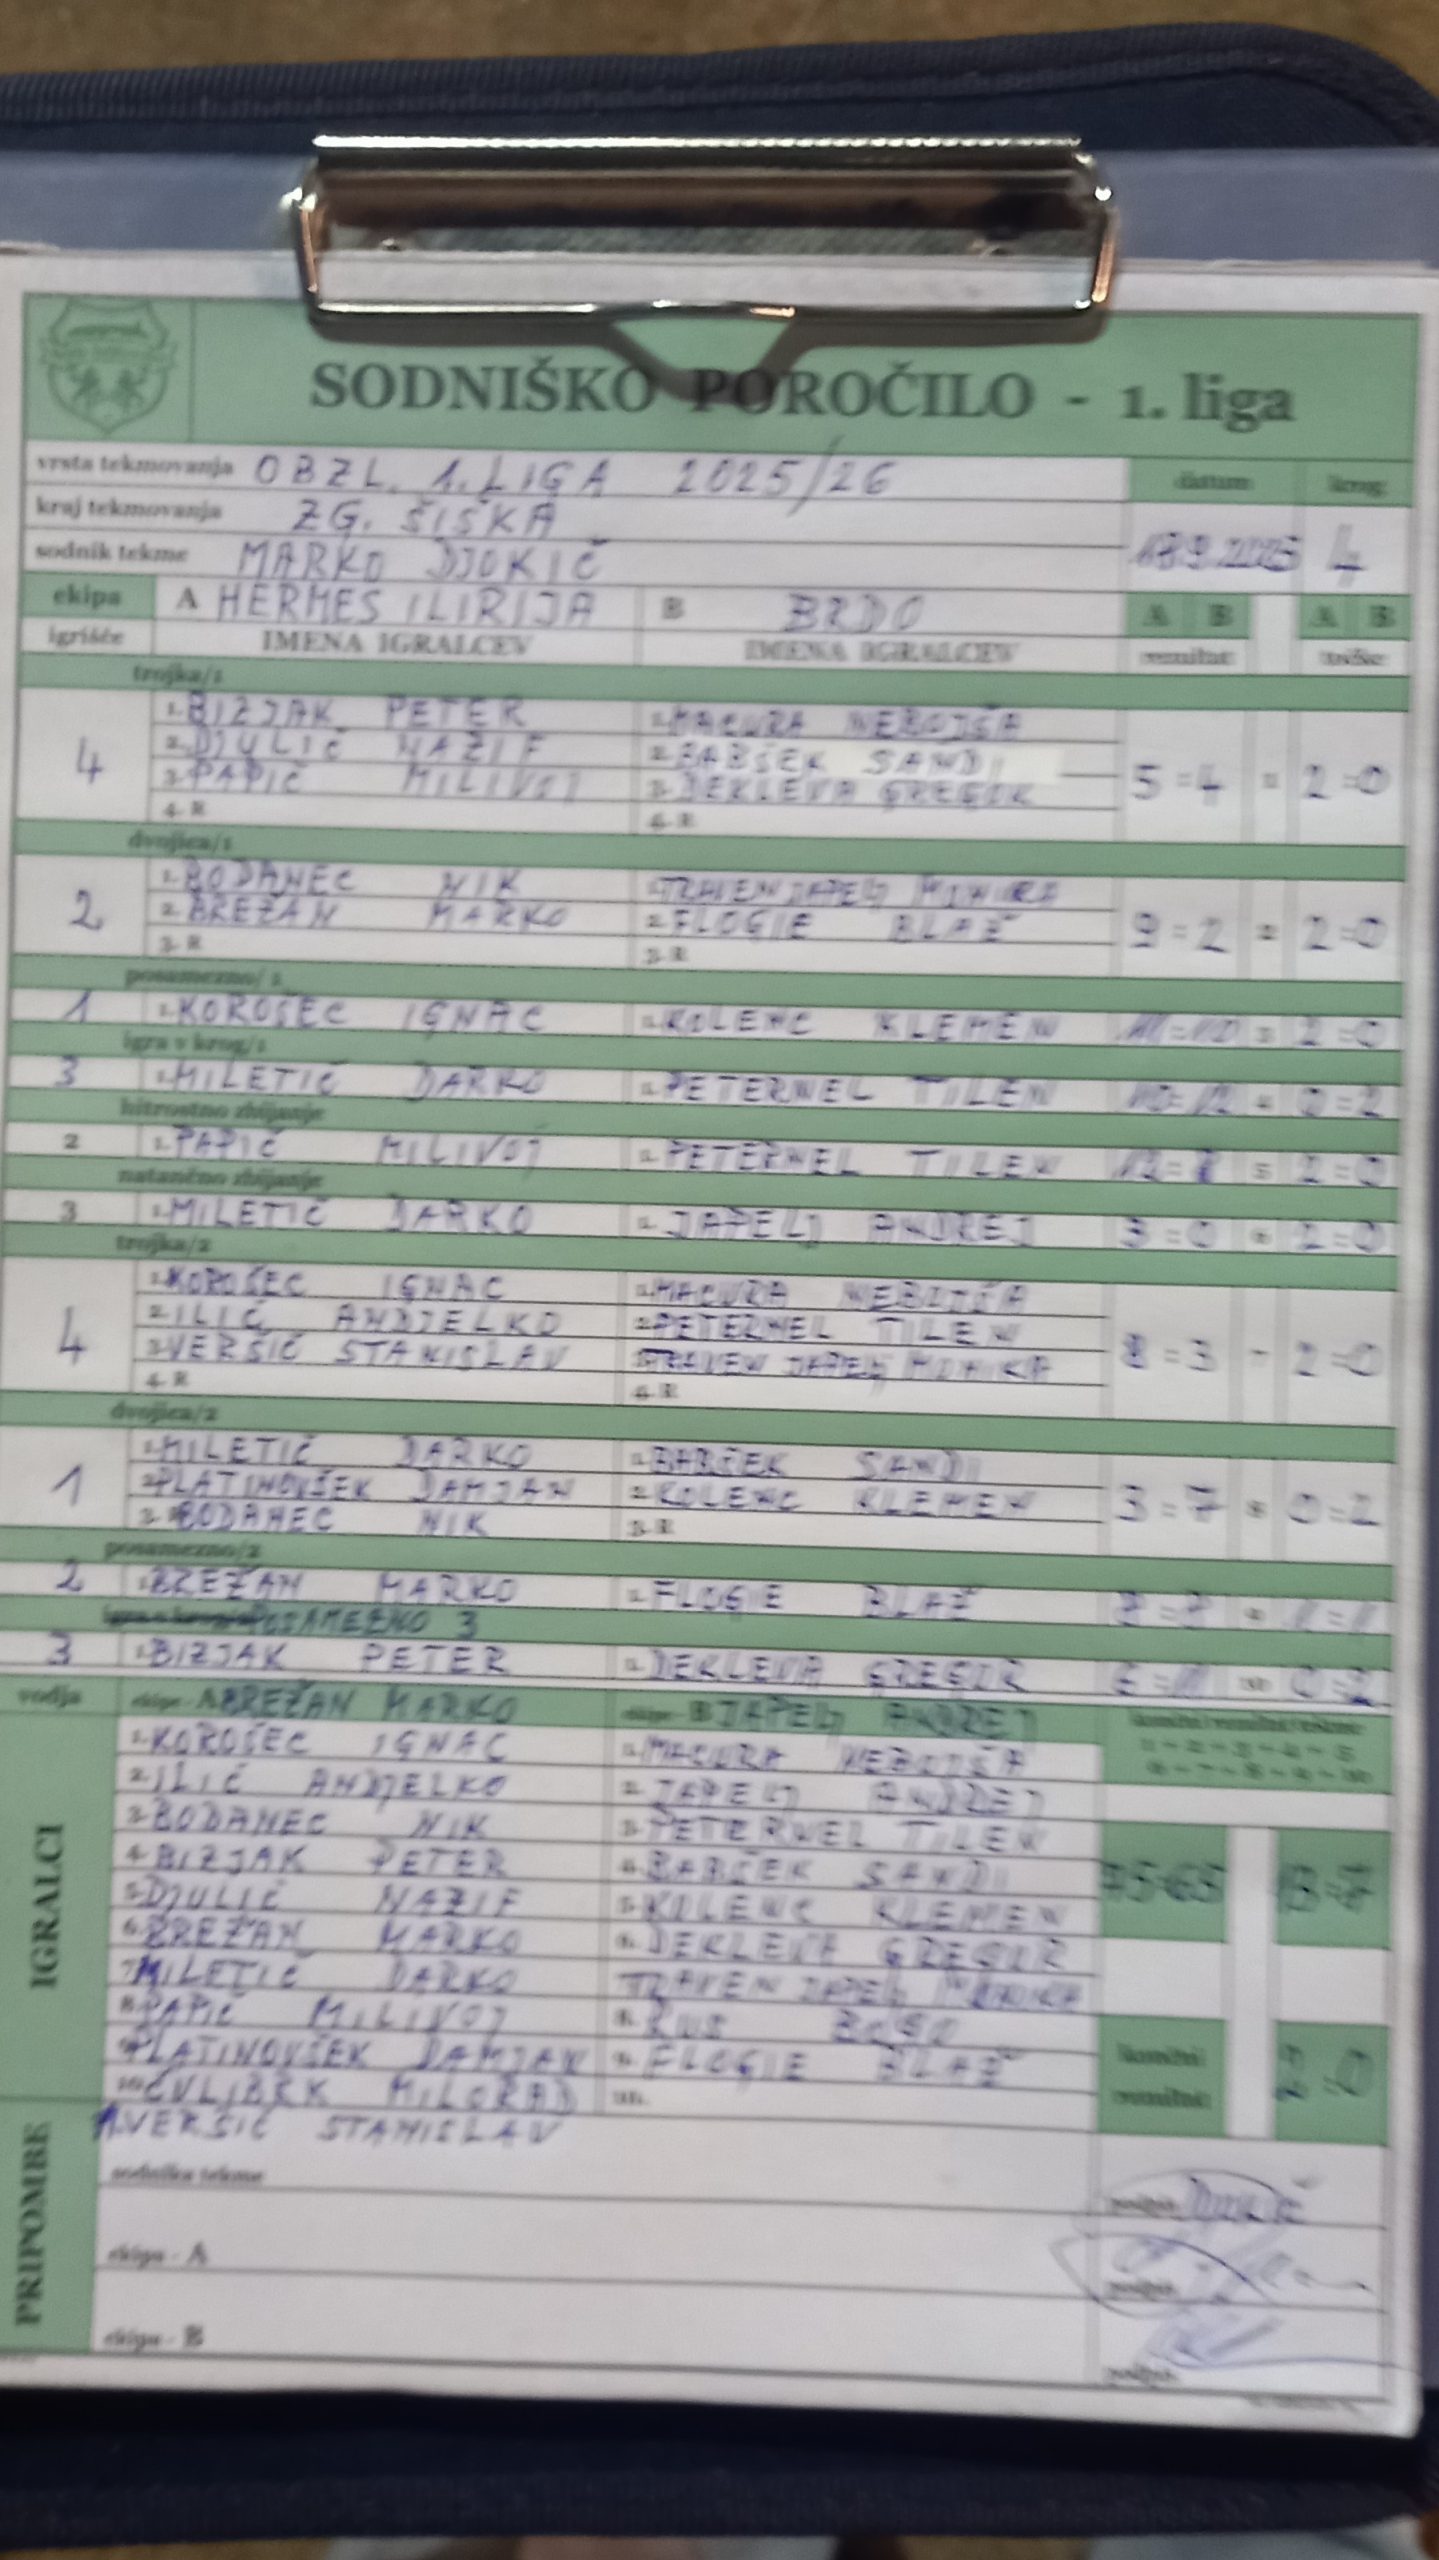 SODNIŠKO POROČILO - 1. liga
vrsta tekmovanja OBZL. 1. LIGA 2025/26
datum krog
kraj tekmovanja ZG. ŠIŠKA
sodnik tekme MARKO DJOKIČ
4
ekipa A HERMES ILIRIJA B BRDO A B A B
igrišče IMENA IGRALCEV IMENA IGRALCEV rezultat točke
trojka/1
1. BIZJAK PETER 1. MACURA NEBOJŠA
4 2. DJULIČ NAZIF 2. BABŠEK SANDI 5 = 4 = 2 = 0
3. PAPIČ MILIVOJ 3. DEKLEVA GREGOR
4. R 4. R
dvojica/1
1. BODANEC NIK 1. TRAVEN JAPELJ MONIKA
2 2. BREŽAN MARKO 2. FLOGIE BLAŽ 9 = 2 = 2 = 0
3. R 3. R
posamezno/1
1 1. KOROŠEC IGNAC 1. KOLENC KLEMEN 2 = 0
igra v krog/1
3 1. MILETIČ DARKO 1. PETERNEL TILEN 10 = 12 = 0 = 2
hitrostno zbijanje
2 1. PAPIČ MILIVOJ 1. PETERNEL TILEN 2 = 0
natančno zbijanje
3 1. MILETIČ DARKO 1. JAPELJ ANDREJ 3 = 0 = 2 = 0
trojka/2
1. KOROŠEC IGNAC 1. MACURA NEBOJŠA
4 2. ILIĆ ANDJELKO 2. PETERNEL TILEN 8 = 3 - 2 = 0
3. VERŠIČ STANISLAV 3. TRAVEN JAPELJ MONIKA
4. R 4. R
dvojica/2
1. MILETIČ DARKO 1. BABŠEK SANDI
1 2. PLATINOVŠEK DAMJAN 2. KOLENC KLEMEN 3 = 7 = 0 = 2
3. BODANEC NIK 3. R
posamezno/2
2 1. BREŽAN MARKO 1. FLOGIE BLAŽ 7 = 7 = 1 = 1
POSAMEZNO 3
3 1. BIZJAK PETER 1. DEKLEVA GREGOR 0 = 2
vodja ekipe - A BREŽAN MARKO ekipe - B JAPELJ ANDREJ
IGRALCI
1. KOROŠEC IGNAC 1. MACURA NEBOJŠA
2. ILIĆ ANDJELKO 2. JAPELJ ANDREJ
3. BODANEC NIK 3. PETERNEL TILEN
4. BIZJAK PETER 4. BABŠEK SANDI
5. DJULIČ NAZIF 5. KOLENC KLEMEN
13 = 7
6. BREŽAN MARKO 6. DEKLEVA GREGOR
7. MILETIČ DARKO TRAVEN JAPELJ MONIKA
8. PAPIČ MILIVOJ 8. RUS
9. PLATINOVŠEK DAMJAN 9. FLOGIE BLAŽ
končni rezultat 2 = 0
10. ČVLJBRK MILORAD 10.
11. VERŠIČ STANISLAV
PRIPOMBE
sodnika tekme podpis
ekipa - A podpis
ekipa - B podpis